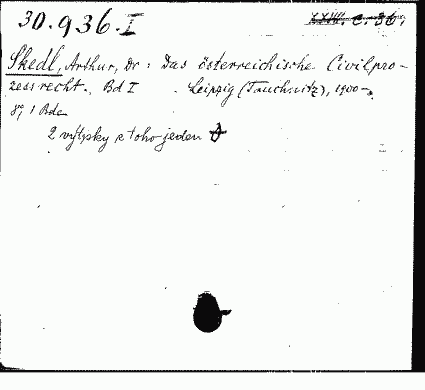 30.936.I XXIII. C. 36.
Skedl, Arthur, Dr: Das österreichische Civilpro-
zessrecht. Bd I Leipzig (Tauchnitz), 1900-
8°, 1 Bde
2 výtisky z toho jeden